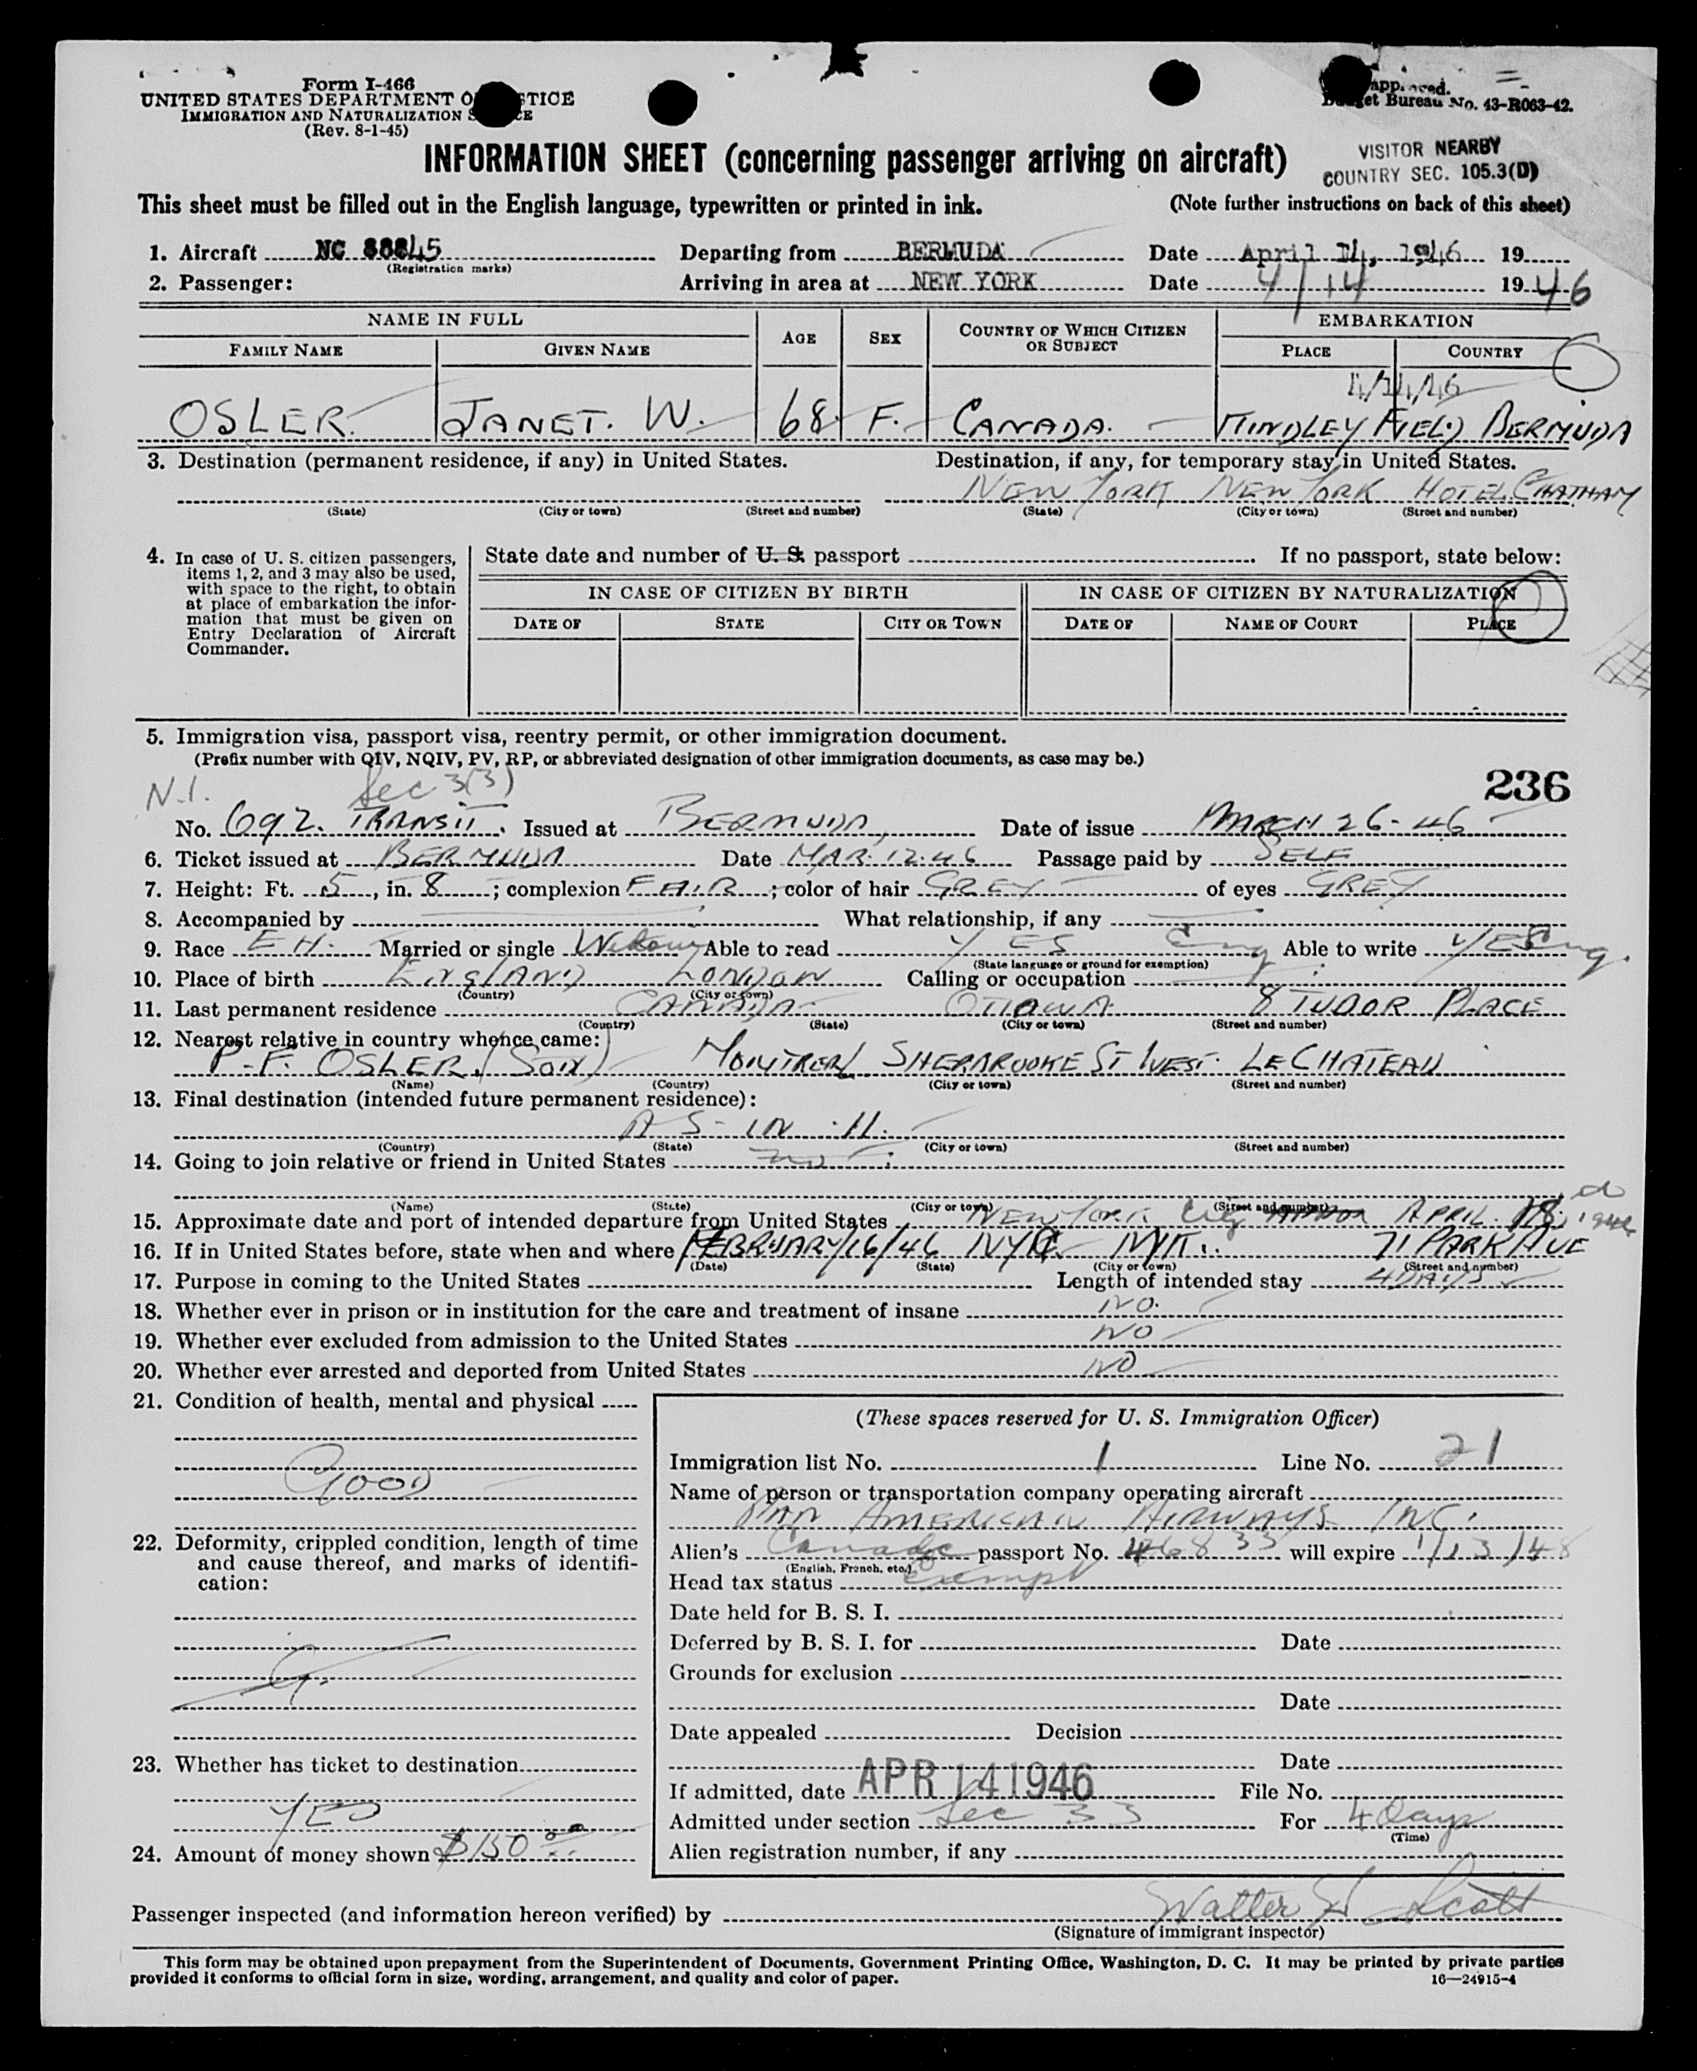 Form I-466
UNITED STATES DEPARTMENT O STICE
IMMIGRATION AND NATURALIZATION S CE
(Rev. 8-1-45)
approved.
Budget Bureau No. 43-R063-42.
INFORMATION SHEET (concerning passenger arriving on aircraft)
VISITOR NEARBY
COUNTRY SEC. 105.3(D)
This sheet must be filled out in the English language, typewritten or printed in ink. (Note further instructions on back of this sheet)
1. Aircraft NC 88845 Departing from BERMUDA Date April 14, 1946 19
(Registration marks)
2. Passenger: Arriving in area at NEW YORK Date 4/14 1946
NAME IN FULL AGE SEX COUNTRY OF WHICH CITIZEN OR SUBJECT EMBARKATION
FAMILY NAME GIVEN NAME PLACE COUNTRY
4/14/46
OSLER. JANET. W. 68. F. CANADA. KINDLEY FIELD BERMUDA
3. Destination (permanent residence, if any) in United States. Destination, if any, for temporary stay in United States.
NEW YORK NEW YORK HOTEL CHATHAM
(State) (City or town) (Street and number) (State) (City or town) (Street and number)
4. In case of U. S. citizen passengers, items 1, 2, and 3 may also be used, with space to the right, to obtain at place of embarkation the information that must be given on Entry Declaration of Aircraft Commander.
State date and number of U. S. passport If no passport, state below:
IN CASE OF CITIZEN BY BIRTH IN CASE OF CITIZEN BY NATURALIZATION
DATE OF STATE CITY OR TOWN DATE OF NAME OF COURT PLACE
5. Immigration visa, passport visa, reentry permit, or other immigration document.
(Prefix number with QIV, NQIV, PV, RP, or abbreviated designation of other immigration documents, as case may be.)
N.I. Sec 3(3) 236
No. 692. TRANSIT. Issued at BERMUDA, Date of issue MARCH 26-46
6. Ticket issued at BERMUDA Date MAR. 12.46 Passage paid by SELF
7. Height: Ft. 5, in. 8; complexion FAIR; color of hair GREY of eyes GREY
8. Accompanied by What relationship, if any
9. Race EH. Married or single Widow Able to read YES Eng Able to write YES Eng.
(State language or ground for exemption)
10. Place of birth ENGLAND LONDON Calling or occupation
(Country) (City or town)
11. Last permanent residence CANADA OTTAWA 8 TUDOR PLACE
(Country) (State) (City or town) (Street and number)
12. Nearest relative in country whence came:
P.F. OSLER. (SON) MONTREAL SHERBROOKE ST WEST. LE CHATEAU
(Name) (Country) (City or town) (Street and number)
13. Final destination (intended future permanent residence):
AS-IN-11.
(Country) (State) (City or town) (Street and number)
14. Going to join relative or friend in United States no
(Name) (State) (City or town) (Street and number)
15. Approximate date and port of intended departure from United States NEW YORK City APRIL. 18. 1946
16. If in United States before, state when and where FEBRUARY/16/46 NYC 71 PARK AVE
(Date) (State) (City or town) (Street and number)
17. Purpose in coming to the United States Length of intended stay 4 DAYS
18. Whether ever in prison or in institution for the care and treatment of insane NO.
19. Whether ever excluded from admission to the United States NO
20. Whether ever arrested and deported from United States NO
21. Condition of health, mental and physical
GOOD
22. Deformity, crippled condition, length of time and cause thereof, and marks of identification:
23. Whether has ticket to destination
YES
24. Amount of money shown $150.00
(These spaces reserved for U. S. Immigration Officer)
Immigration list No. 1 Line No. 21
Name of person or transportation company operating aircraft
PAN AMERICAN AIRWAYS INC.
Alien's Canada passport No. 46833 will expire 1/13/48
(English, French, etc.)
Head tax status exempt
Date held for B. S. I.
Deferred by B. S. I. for Date
Grounds for exclusion
Date
Date appealed Decision
Date
If admitted, date APR 14 1946 File No.
Admitted under section Sec 33 For 4 Days
(Time)
Alien registration number, if any
Passenger inspected (and information hereon verified) by Walter H Scott
(Signature of immigrant inspector)
This form may be obtained upon prepayment from the Superintendent of Documents, Government Printing Office, Washington, D. C. It may be printed by private parties
provided it conforms to official form in size, wording, arrangement, and quality and color of paper. 16—24915-4